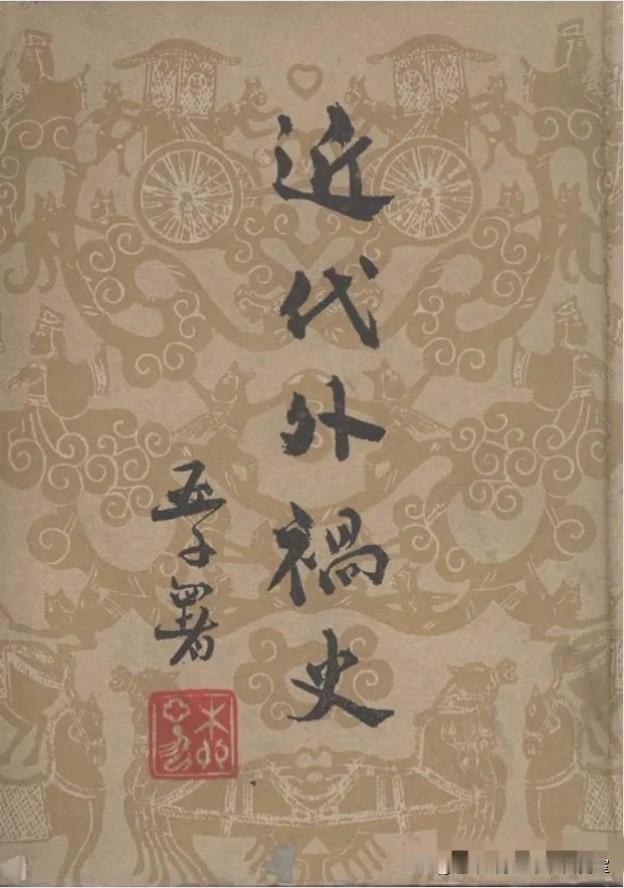 近代外禍史
五子署